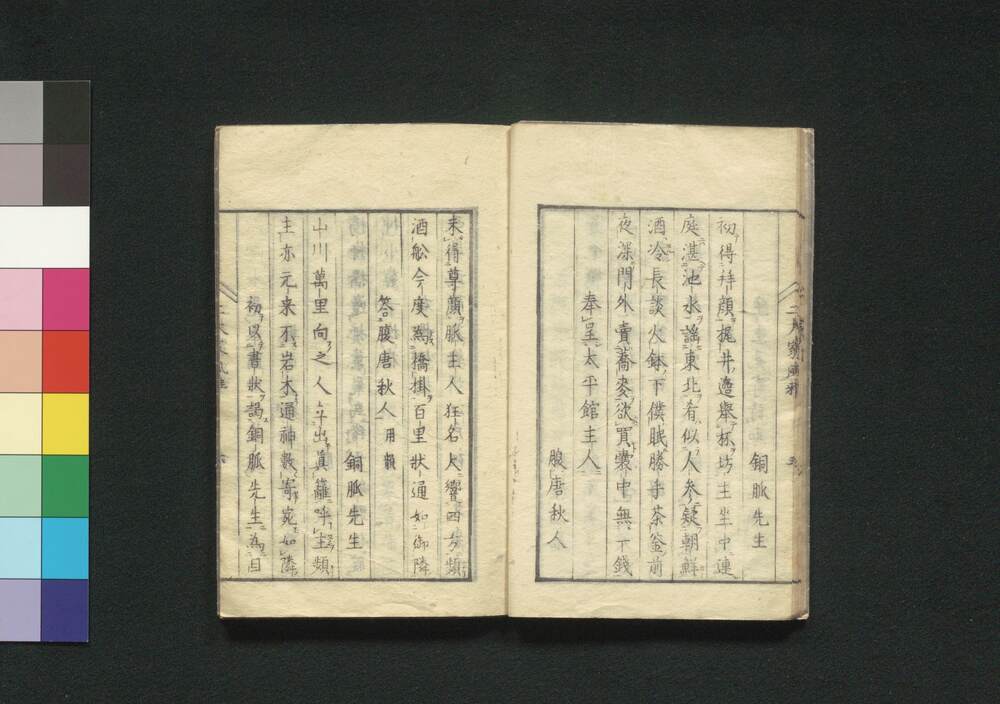 銅脈先生
初得拜顔梶井邉舉杯坊主坐中連
庭湛池水謡東北肴似人参疑朝鮮
酒冷長談火鉢下僕眠勝手茶釜前
夜深門外賣蕎麦欲買嚢中無下錢
奉呈太平館主人
腹唐秋人
未得尊顔脈主人狂名人響四方頻
酒舩今度為橋掛百里状通如御隣
答腹唐秋人用韻
銅脈先生
山川萬里向之人斗出眞籬呼主頻
主亦元来不岩木通神数寄宛如隣
初以書状謁銅脈先生為因